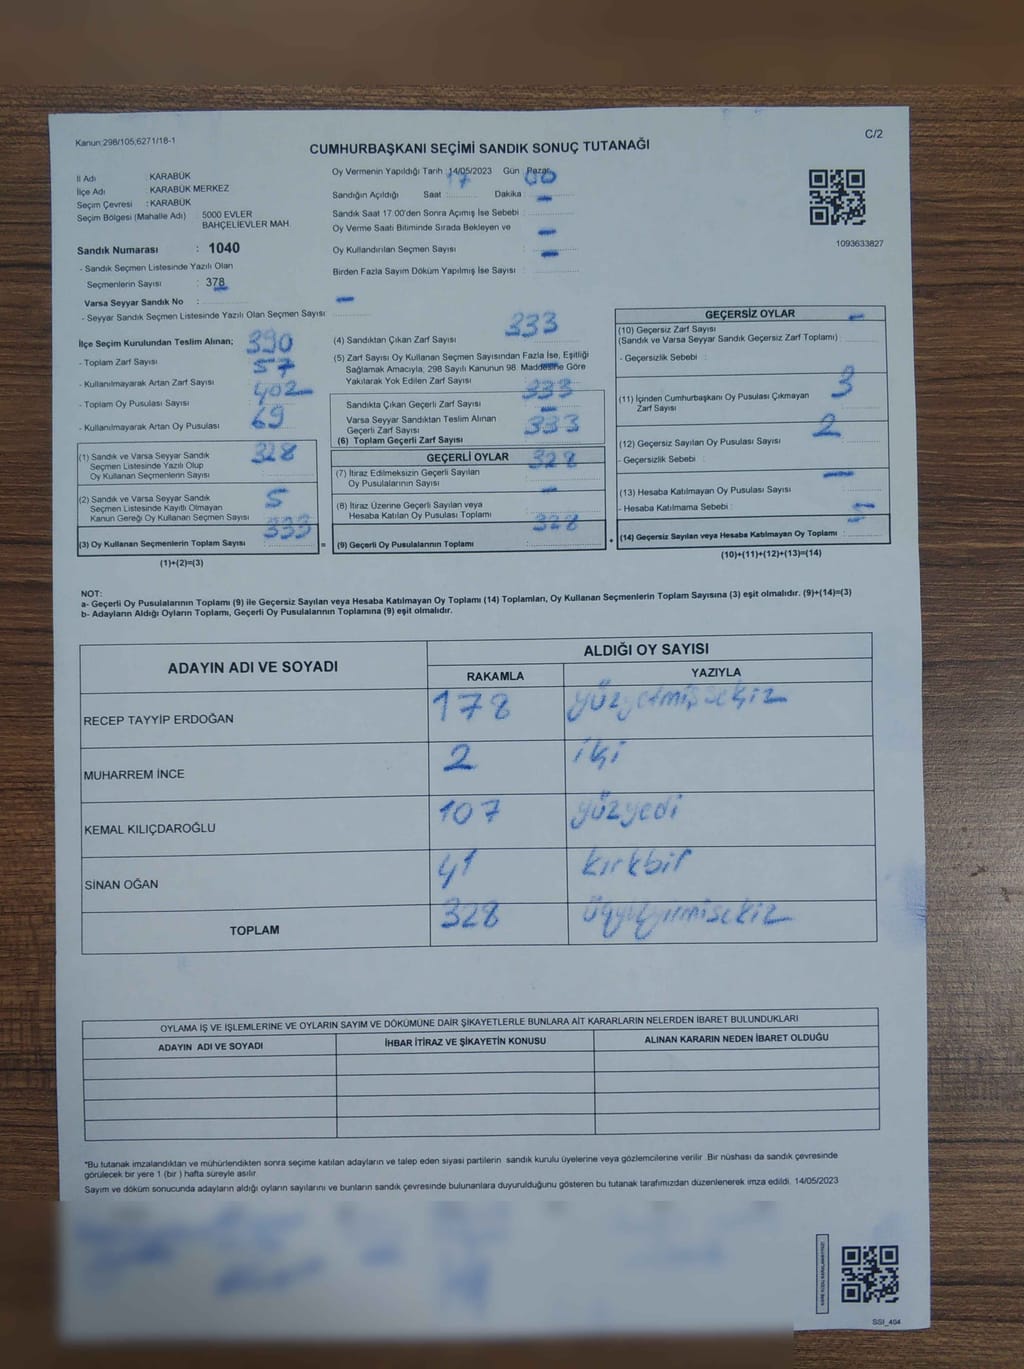 Kanun:298/105,6271/18-1
C/2
CUMHURBAŞKANI SEÇİMİ SANDIK SONUÇ TUTANAĞI
İl Adı KARABÜK
İlçe Adı KARABÜK MERKEZ
Seçim Çevresi : KARABÜK
Seçim Bölgesi (Mahalle Adı) : 5000 EVLER
BAHÇELİEVLER MAH.
Sandık Numarası : 1040
- Sandık Seçmen Listesinde Yazılı Olan
Seçmenlerin Sayısı : 378
Varsa Seyyar Sandık No :
- Seyyar Sandık Seçmen Listesinde Yazılı Olan Seçmen Sayısı : -
Oy Vermenin Yapıldığı Tarih :14/05/2023 Gün : Pazar
Sandığın Açıldığı Saat : 17 Dakika : 00
Sandık Saat 17.00'den Sonra Açımış İse Sebebi : -
Oy Verme Saati Bitiminde Sırada Bekleyen ve
Oy Kullandırılan Seçmen Sayısı : -
Birden Fazla Sayım Döküm Yapılmış İse Sayısı : -
1093633827
İlçe Seçim Kurulundan Teslim Alınan;
- Toplam Zarf Sayısı : 390
- Kullanılmayarak Artan Zarf Sayısı : 57
- Toplam Oy Pusulası Sayısı : 402
- Kullanılmayarak Artan Oy Pusulası : 69
(1) Sandık ve Varsa Seyyar Sandık
Seçmen Listesinde Yazılı Olup
Oy Kullanan Seçmenlerin Sayısı : 328
(2) Sandık ve Varsa Seyyar Sandık
Seçmen Listesinde Kayıtlı Olmayan
Kanun Gereği Oy Kullanan Seçmen Sayısı : 5
(3) Oy Kullanan Seçmenlerin Toplam Sayısı : 333
=
(1)+(2)=(3)
(4) Sandıktan Çıkan Zarf Sayısı : 333
(5) Zarf Sayısı Oy Kullanan Seçmen Sayısından Fazla İse, Eşitliği
Sağlamak Amacıyla, 298 Sayılı Kanunun 98. Maddesine Göre
Yakılarak Yok Edilen Zarf Sayısı : -
Sandıkta Çıkan Geçerli Zarf Sayısı : 333
Varsa Seyyar Sandıktan Teslim Alınan
Geçerli Zarf Sayısı : -
(6) Toplam Geçerli Zarf Sayısı : 333
GEÇERLİ OYLAR
(7) İtiraz Edilmeksizin Geçerli Sayılan
Oy Pusulalarının Sayısı : 328
(8) İtiraz Üzerine Geçerli Sayılan veya
Hesaba Katılan Oy Pusulası Toplamı : -
(9) Geçerli Oy Pusulalarının Toplamı : 328
+
GEÇERSİZ OYLAR
(10) Geçersiz Zarf Sayısı
(Sandık ve Varsa Seyyar Sandık Geçersiz Zarf Toplamı) : -
- Geçersizlik Sebebi :
(11) İçinden Cumhurbaşkanı Oy Pusulası Çıkmayan
Zarf Sayısı : 3
(12) Geçersiz Sayılan Oy Pusulası Sayısı : 2
- Geçersizlik Sebebi :
(13) Hesaba Katılmayan Oy Pusulası Sayısı : -
- Hesaba Katılmama Sebebi :
(14) Geçersiz Sayılan veya Hesaba Katılmayan Oy Toplamı : 5
(10)+(11)+(12)+(13)=(14)
NOT:
a- Geçerli Oy Pusulalarının Toplamı (9) ile Geçersiz Sayılan veya Hesaba Katılmayan Oy Toplamı (14) Toplamları, Oy Kullanan Seçmenlerin Toplam Sayısına (3) eşit olmalıdır. (9)+(14)=(3)
b- Adayların Aldığı Oyların Toplamı, Geçerli Oy Pusulalarının Toplamına (9) eşit olmalıdır.
ADAYIN ADI VE SOYADI ALDIĞI OY SAYISI
RAKAMLA YAZIYLA
RECEP TAYYİP ERDOĞAN 178 yüzyetmişsekiz
MUHARREM İNCE 2 iki
KEMAL KILIÇDAROĞLU 107 yüzyedi
SİNAN OĞAN 41 kırkbir
TOPLAM 328 üçyüzyirmisekiz
OYLAMA İŞ VE İŞLEMLERİNE VE OYLARIN SAYIM VE DÖKÜMÜNE DAİR ŞİKAYETLERLE BUNLARA AİT KARARLARIN NELERDEN İBARET BULUNDUKLARI
ADAYIN ADI VE SOYADI İHBAR İTİRAZ VE ŞİKAYETİN KONUSU ALINAN KARARIN NEDEN İBARET OLDUĞU
*Bu tutanak imzalandıktan ve mühürlendikten sonra seçime katılan adayların ve talep eden siyasi partilerin sandık kurulu üyelerine veya gözlemcilerine verilir .Bir nüshası da sandık çevresinde
görülecek bir yere 1 (bir ) hafta süreyle asılır.
Sayım ve döküm sonucunda adayların aldığı oyların sayılarını ve bunların sandık çevresinde bulunanlara duyurulduğunu gösteren bu tutanak tarafımızdan düzenlenerek imza edildi. 14/05/2023
SSI_404